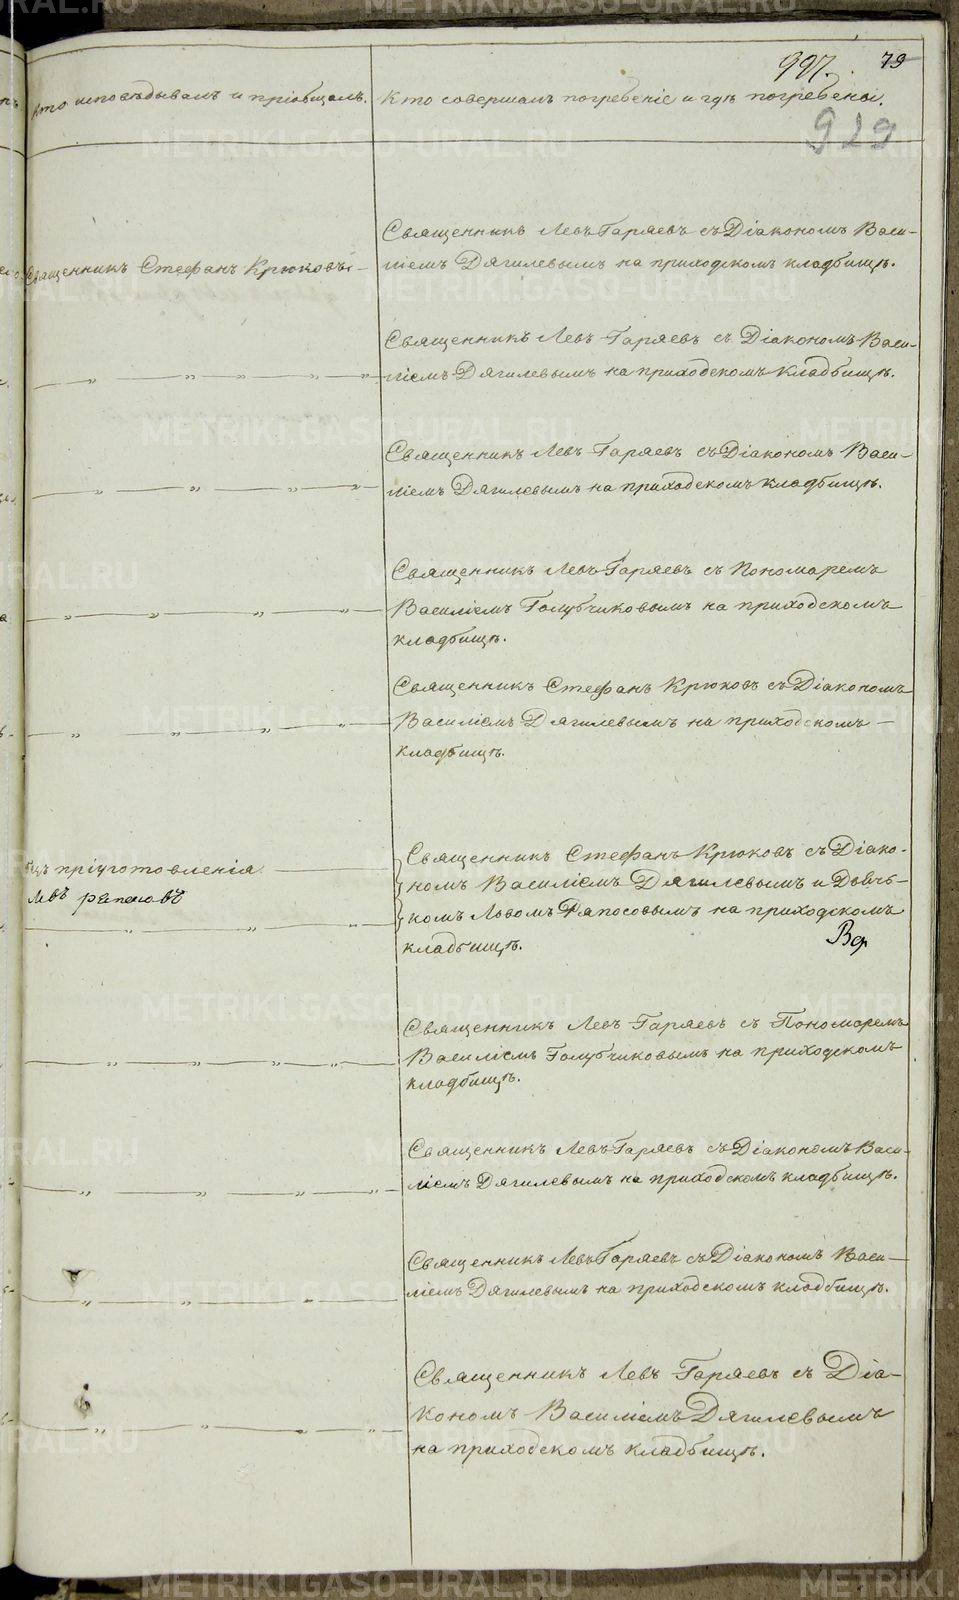 997. 79
Кто исповѣдывалъ и пріобщалъ. Кто совершалъ погребеніе и гдѣ погребены.
929
Священникъ Левъ Гаряевъ съ Діакономъ Васи-
Священникъ Стефанъ Крюковъ
ліемъ Дягилевымъ на приходскомъ кладбищѣ.
Священникъ Левъ Гаряевъ съ Діакономъ Васи-
— „ — „ — „ — „ — „
ліемъ Дягилевымъ на приходскомъ кладбищѣ.
Священникъ Левъ Гаряевъ съ Діакономъ Васи-
— „ — „ — „ — „
ліемъ Дягилевымъ на приходскомъ кладбищѣ.
Священникъ Левъ Гаряевъ съ Пономаремъ
— „ — „ — „ — „
Василіемъ Голубчиковымъ на приходскомъ
кладбищѣ.
Священникъ Стефанъ Крюковъ съ Діакономъ
— „ — „ — „ — „
Василіемъ Дягилевымъ на приходскомъ —
кладбищѣ.
Священникъ Стефанъ Крюковъ съ Діако-
пріуготовленія
номъ Василіемъ Дягилевымъ и Дьяч-
Левъ
комъ Львомъ Рапосовымъ на приходскомъ
— „ — „ — „
кладбищѣ.
Священникъ Левъ Гаряевъ съ Пономаремъ
— „ — „ — „ — „
Василіемъ Голубчиковымъ на приходскомъ
кладбищѣ.
Священникъ Левъ Гаряевъ съ Діакономъ Васи-
— „ — „ — „ — „
ліемъ Дягилевымъ на приходскомъ кладбищѣ.
Священникъ Левъ Гаряевъ съ Діакономъ Васи-
— „ — „ — „
ліемъ Дягилевымъ на приходскомъ кладбищѣ.
Священникъ Левъ Гаряевъ съ Діа-
— „ — „ — „ — „
кономъ Василіемъ Дягилевымъ
на приходскомъ кладбищѣ.
METRIKI.GASO-URAL.RU